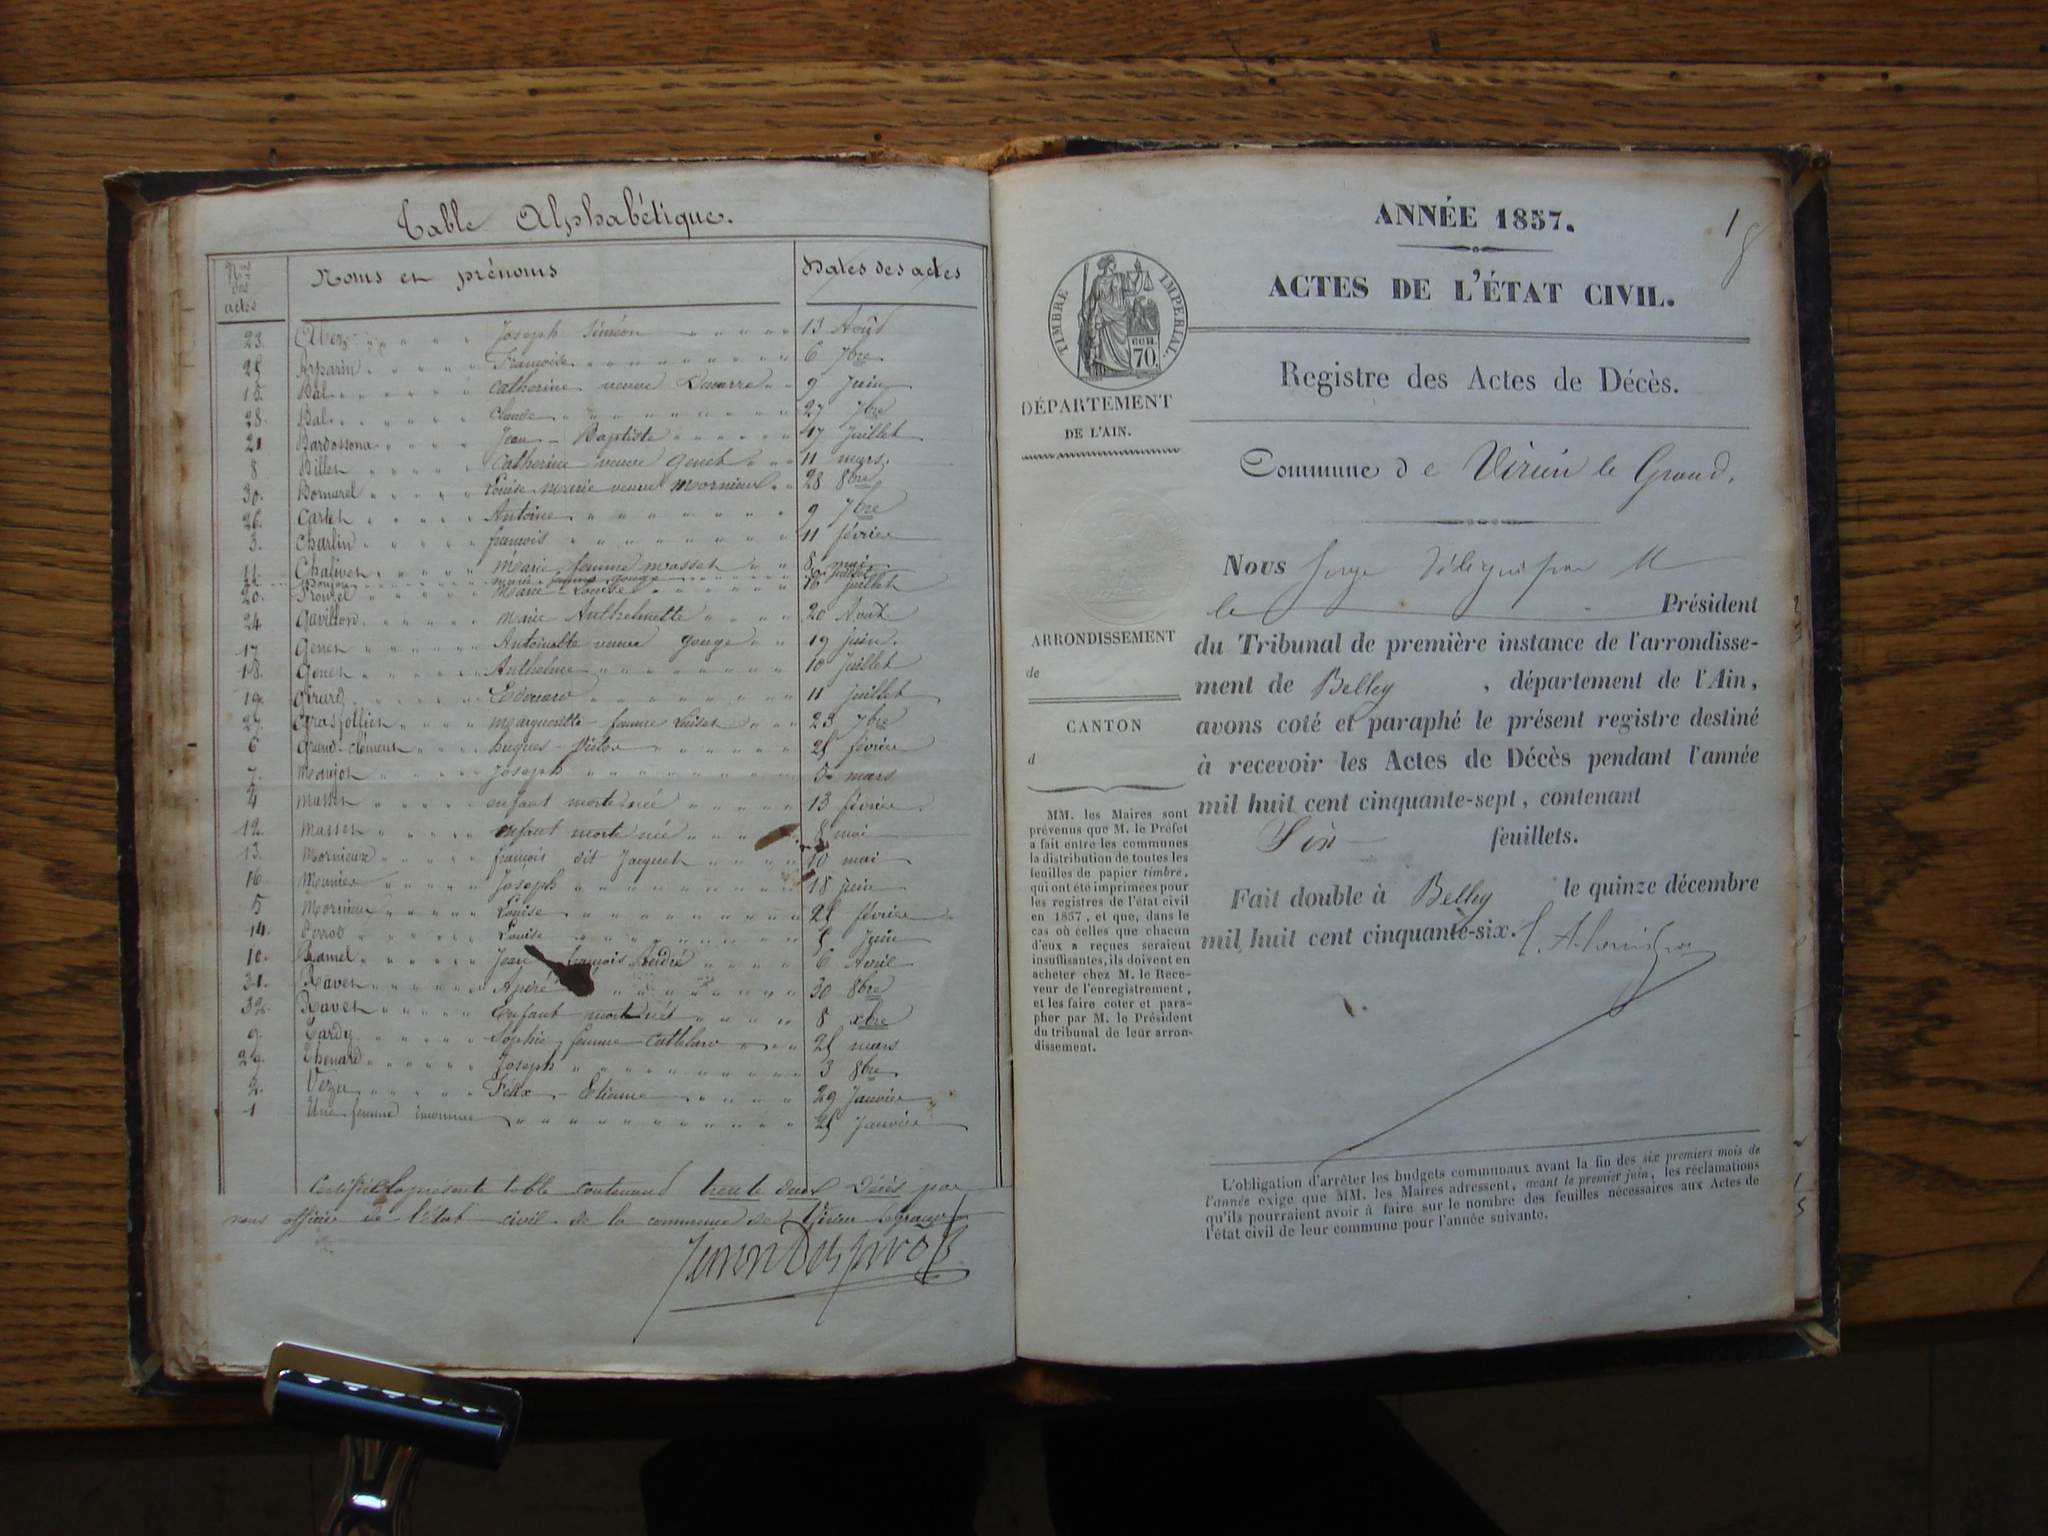 Table Alphabétique.
Nos des actes
Noms et prénoms
Dates des actes
23. Joseph Siméon 13 Août
25 Arparin Françoise 6 7bre
15. Bal Catherine veuve 9 Juin
28. Bal Claude 27 7bre
21 Bardossona Jean-Baptiste 17 Juillet
8 Billet Catherine veuve Genet 11 mars.
30. Bornarel Louise Marie veuve Mornieux 28 8bre
26. Cartet Antoine 9 7bre
3. Charlin françois 11 février
11 Chalivet Marie femme Masset 8 mai
marie femme gouge 30 juillet
20. Marie Louise 16 juillet
24 Gavillon Marie Anthelmette 20 Août
17 Genet Antoinette veuve Gouge 19 juin.
18. Genet Anthelme 10 Juillet
19. Girard Edouard 11 juillet
27. Grasfollier Marguerite femme 23 7bre
6 Grand-clément hugues-Victor 25 février
7. Maujot Joseph 5 mars
4 Masset enfant morte née 13 février.
12. Masset enfant morte née 8 mai
13. Mornieux françois dit Jacquet 10 mai
16 Meunier Joseph 18 juin
5 Mornieux Louise 25 février
14. Perrod Louise 5 Juin
10. Ramel Jean François André 6 Avril
31. Ravet André 30 8bre
32. Ravet Enfant mort né 8 xbre
9. Tardy Sophie femme 25 mars
29. Thenard Joseph 3 8bre
2. Vezu Félix-Etienne 29 Janvier
1 Une femme inconnue 25 Janvier
Certifié la présente table contenant trente deux Décès par
nous officier de l'état civil de la commune de Virieu legrand
ANNÉE 1857.
1
ACTES DE L'ÉTAT CIVIL.
TIMBRE IMPERIAL.
CEN. 70.
Registre des Actes de Décès.
DÉPARTEMENT
DE L'AIN.
Commune de Virieu le Grand.
Nous Juge délégué par M
le Président
ARRONDISSEMENT
de
du Tribunal de première instance de l'arrondisse-
ment de Belley , département de l'Ain,
avons coté et paraphé le présent registre destiné
à recevoir les Actes de Décès pendant l'année
mil huit cent cinquante-sept, contenant
Six feuillets.
Fait double à Belley le quinze décembre
mil huit cent cinquante-six.
CANTON
d
MM. les Maires sont
prévenus que M. le Préfet
a fait entre les communes
la distribution de toutes les
feuilles de papier timbré,
qui ont été imprimées pour
les registres de l'état civil
en 1857, et que, dans le
cas où celles que chacun
d'eux a reçues seraient
insuffisantes, ils doivent en
acheter chez M. le Rece-
veur de l'enregistrement,
et les faire coter et para-
pher par M. le Président
du tribunal de leur arron-
dissement.
L'obligation d'arrêter les budgets communaux avant la fin des six premiers mois de
l'année exige que MM. les Maires adressent, avant le premier juin, les réclamations
qu'ils pourraient avoir à faire sur le nombre des feuilles nécessaires aux Actes de
l'état civil de leur commune pour l'année suivante.